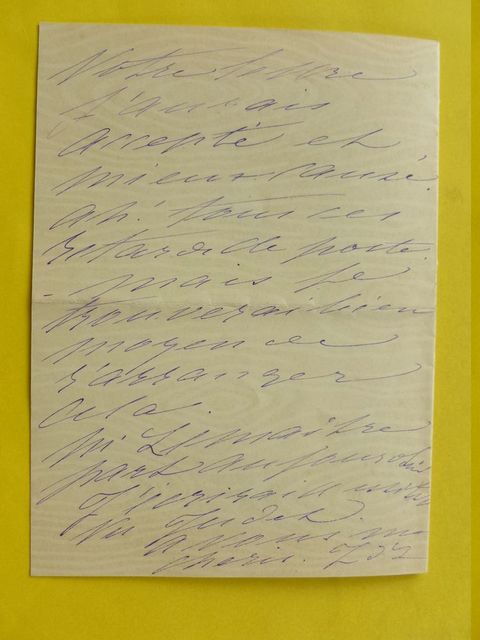 Votre heure
j'aurais
accepté et
mieux causé.
ah! tous ces
retards de poste
mais je
trouverai bien
moyen de
s'arranger
cela.
Mr Lemaître
part aujourd'hui
J'écrirai
Judet.
à vous
chéri.